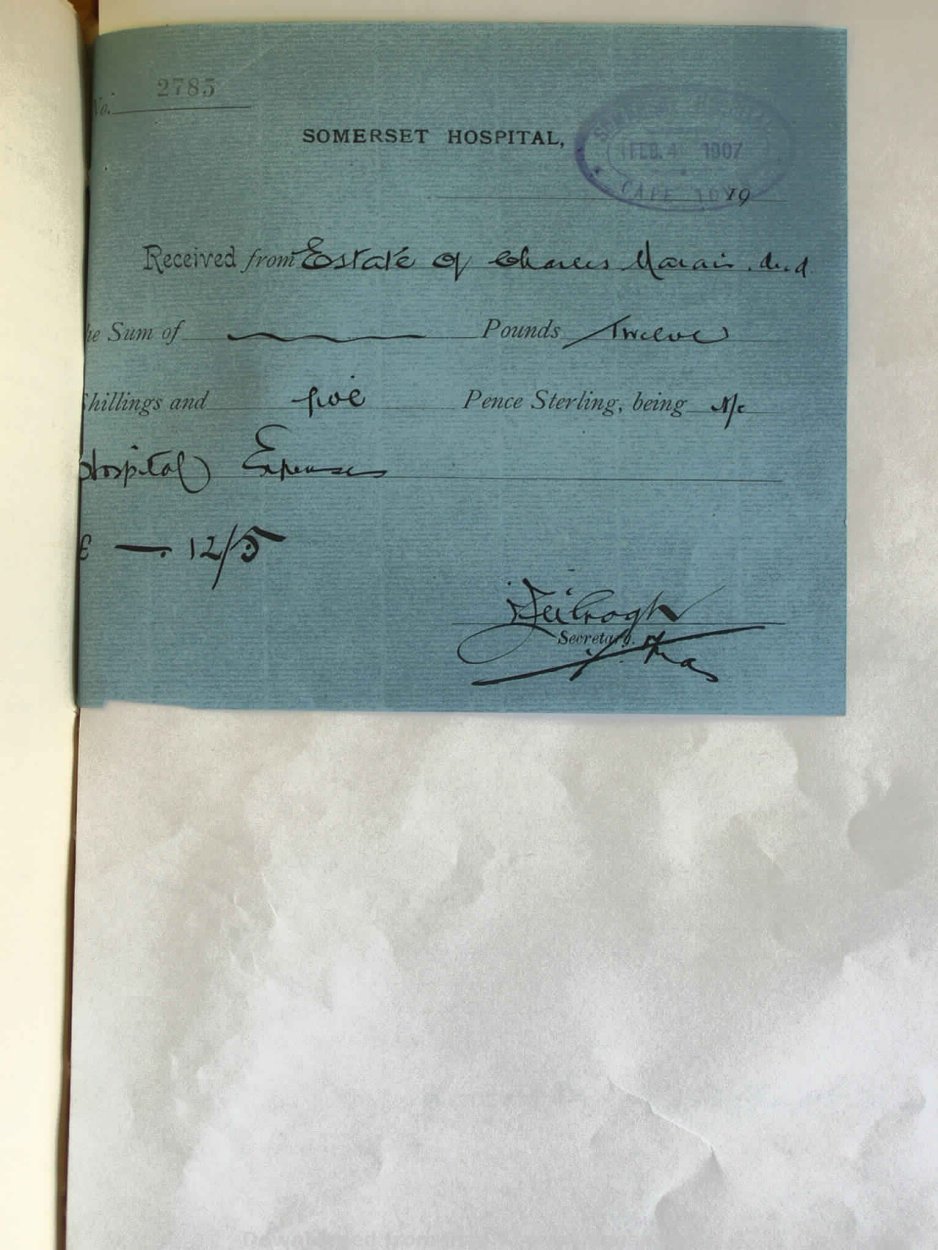 No. 2785
SOMERSET HOSPITAL,
SOMERSET HOSPITAL
FEB. 4 1907
CAPE TOWN
19
Received from Estate of Charles Marais. decd.
he Sum of Pounds Twelve
Shillings and five Pence Sterling, being a/c
Hospital Expenses
£ —. 12/5
Secretary.